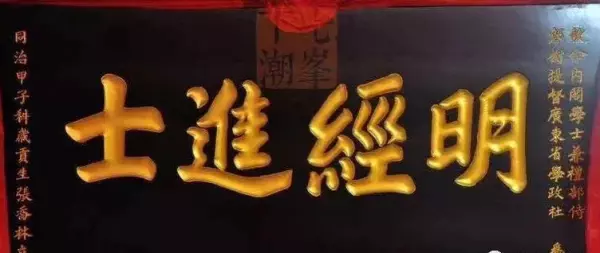 欽命內閣學士兼禮部侍
郎銜提督廣東省學政杜 為
明經進士
同治甲子科歲貢生張香林立